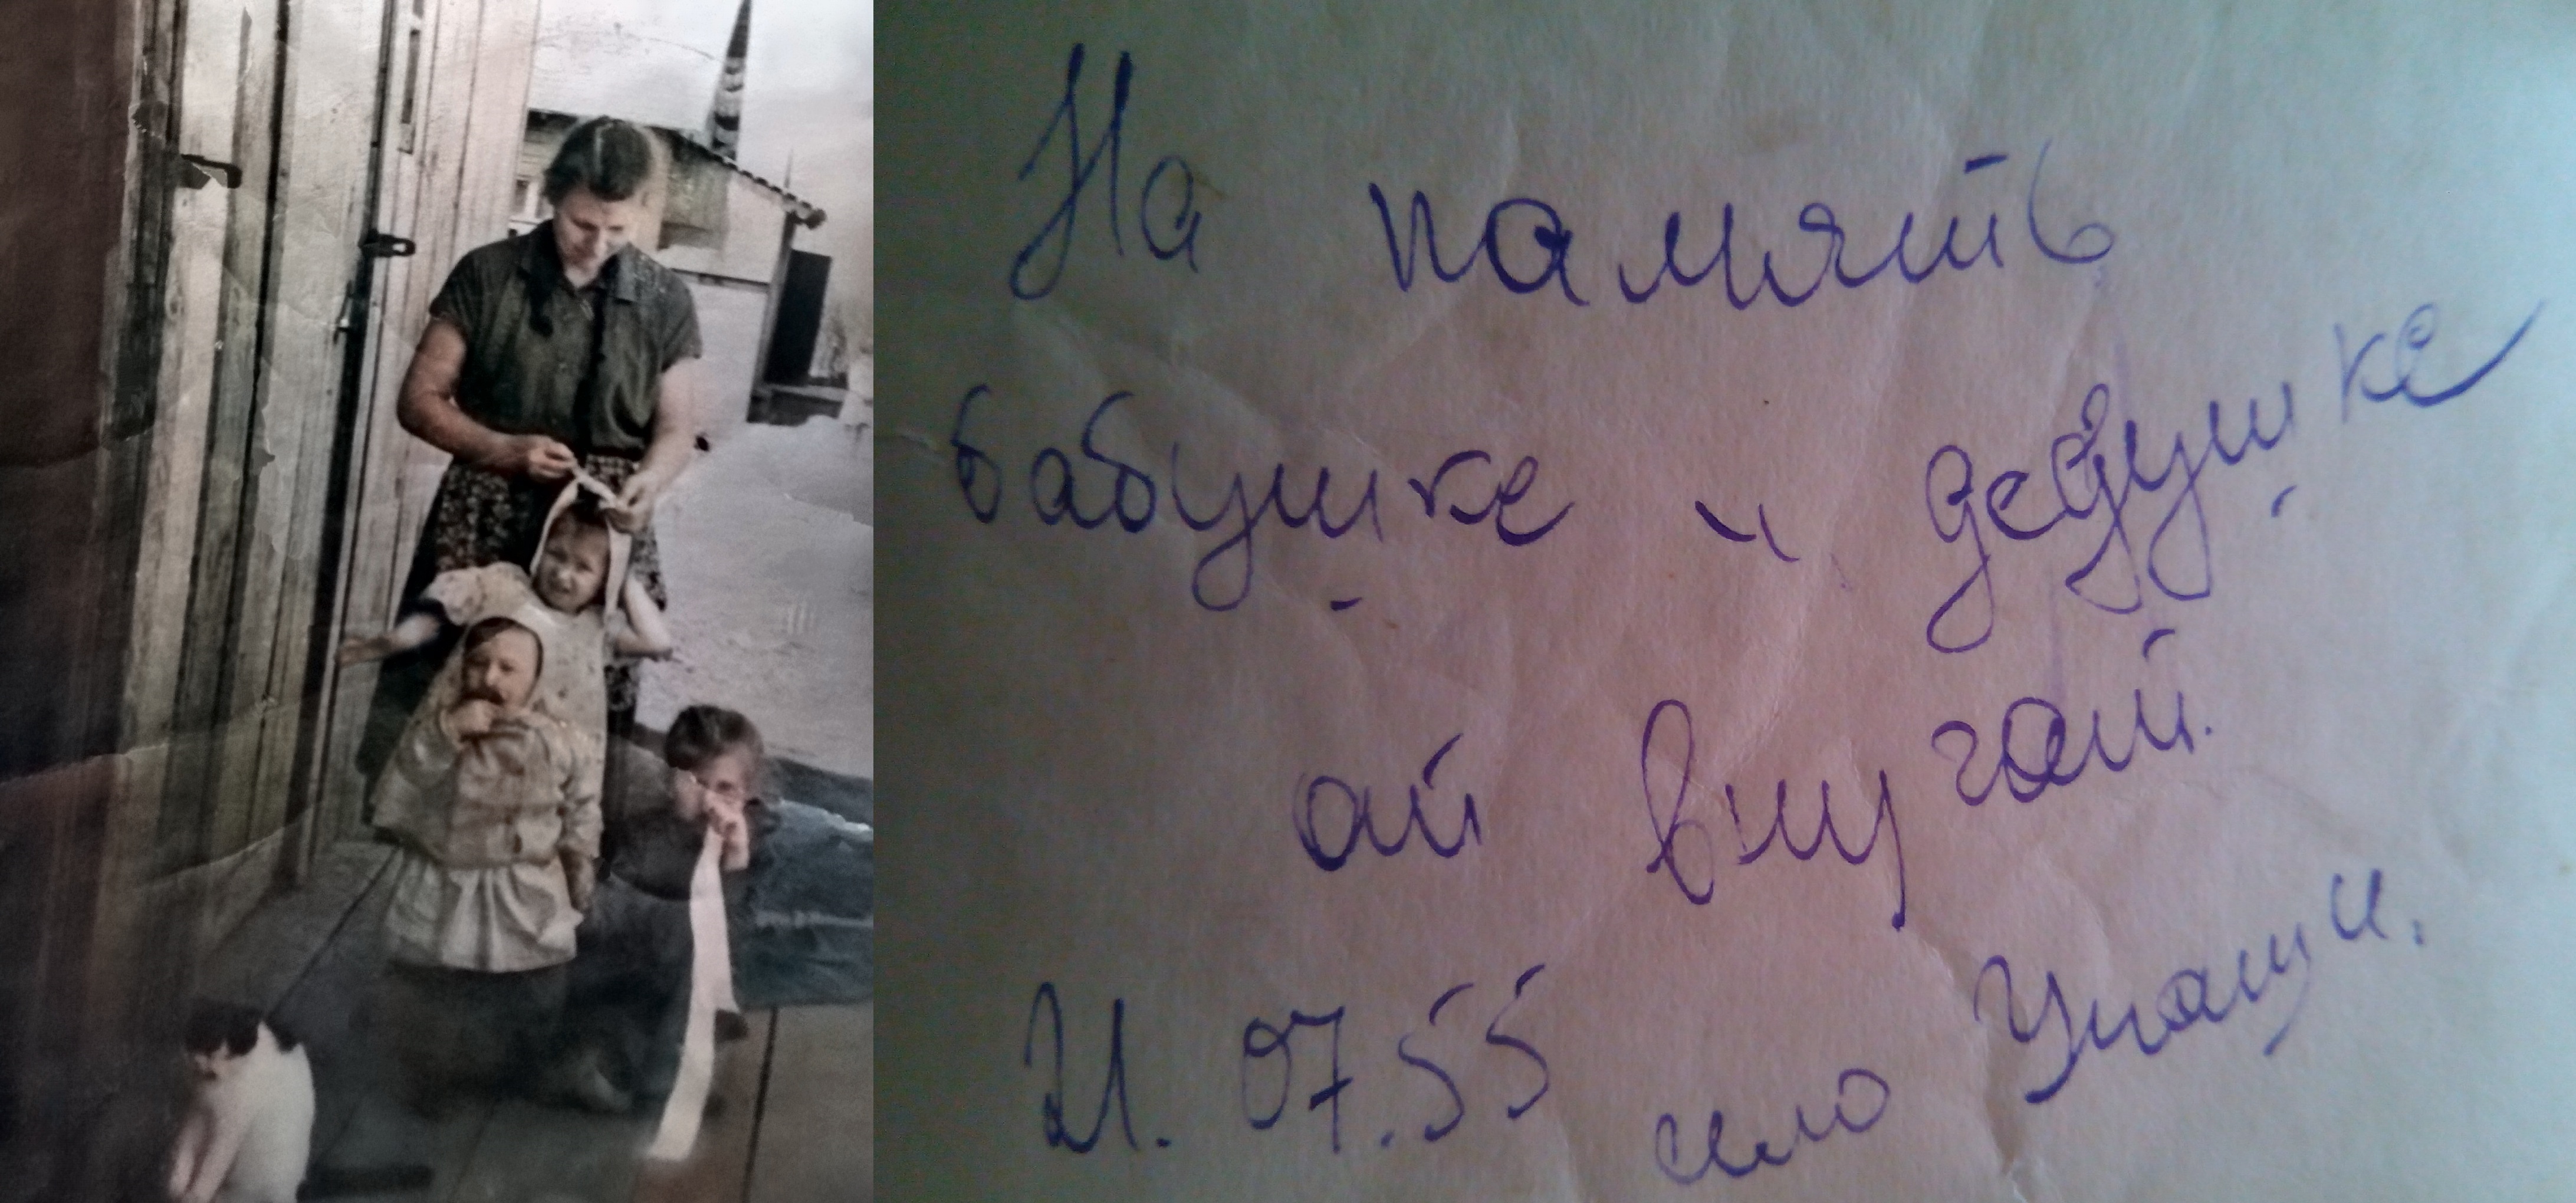 На память
бабушке и дедушке
от внучат.
21. 07.55 село Унаши.